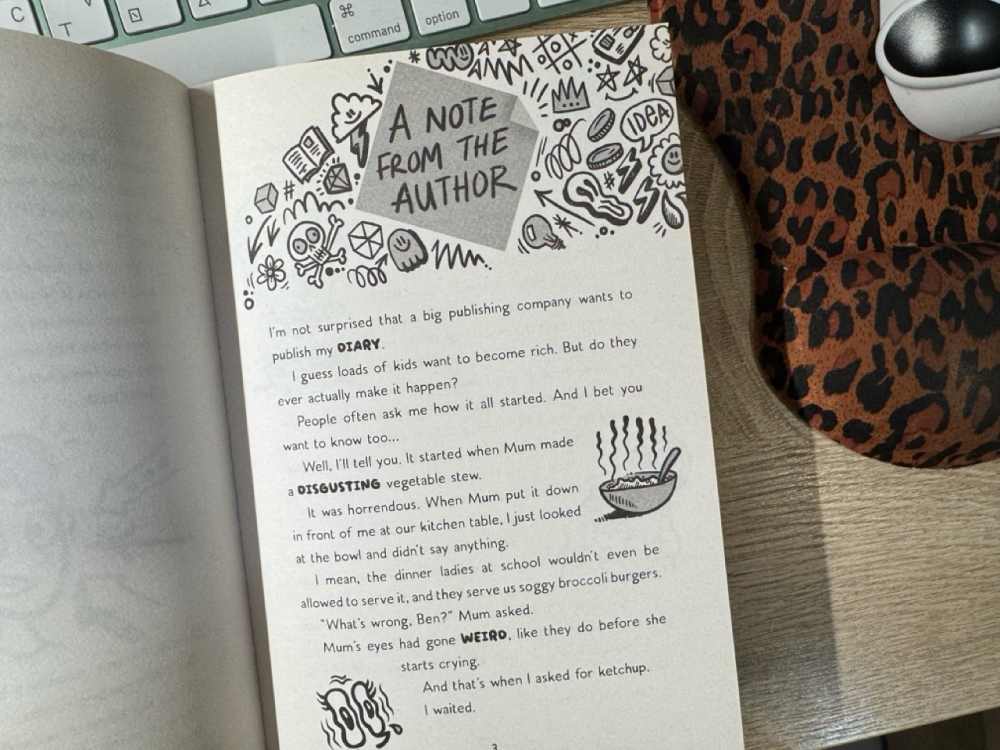 C
T
V
command
⌘
option
A NOTE
FROM THE
AUTHOR
IDEA
I'm not surprised that a big publishing company wants to
publish my DIARY.
I guess loads of kids want to become rich. But do they
ever actually make it happen?
People often ask me how it all started. And I bet you
want to know too...
Well, I'll tell you. It started when Mum made
a DISGUSTING vegetable stew.
It was horrendous. When Mum put it down
in front of me at our kitchen table, I just looked
at the bowl and didn't say anything.
I mean, the dinner ladies at school wouldn't even be
allowed to serve it, and they serve us soggy broccoli burgers.
"What's wrong, Ben?" Mum asked.
Mum's eyes had gone WEIRD, like they do before she
starts crying.
And that's when I asked for ketchup.
I waited.
3